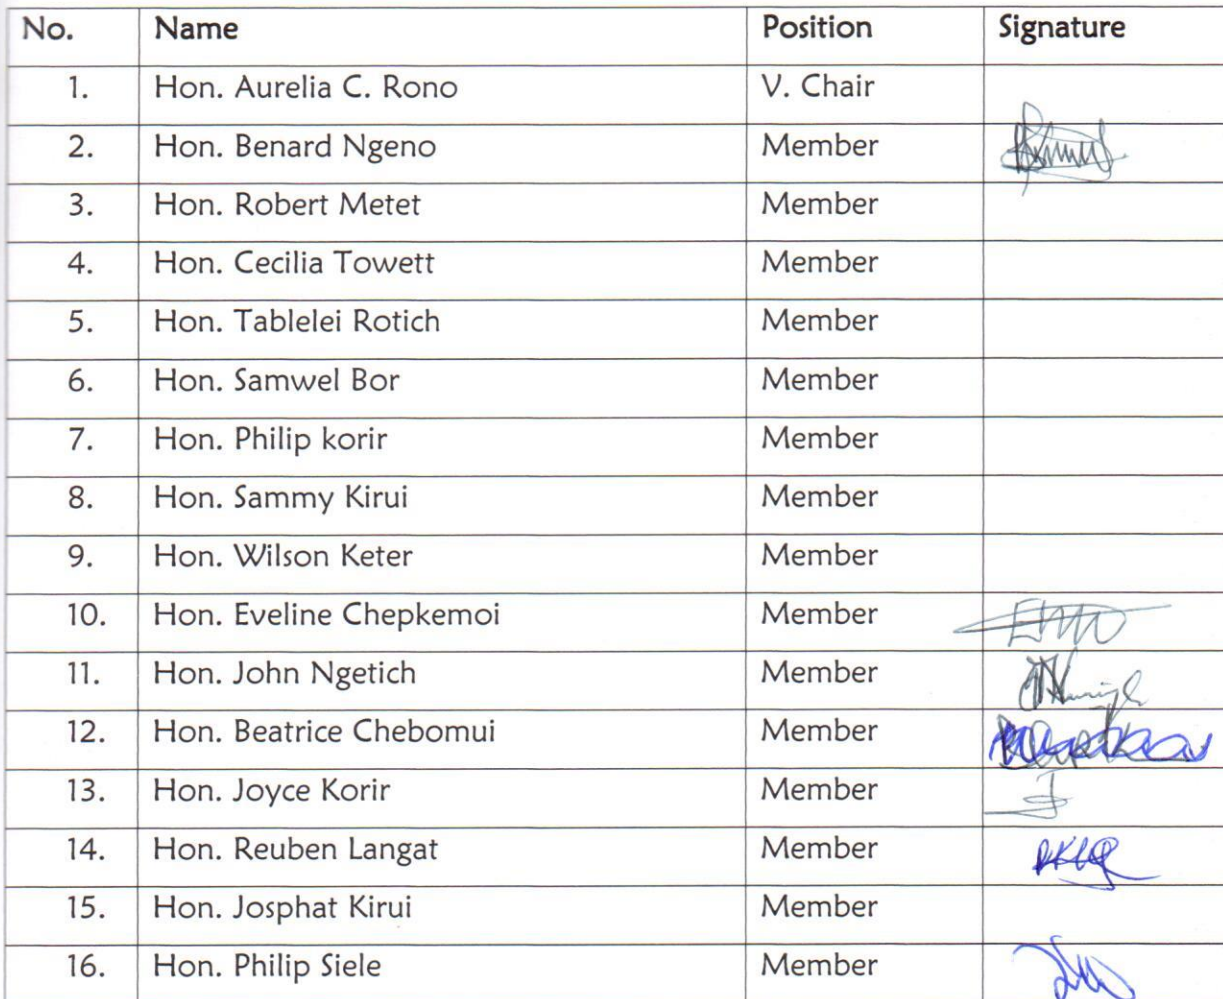 No. Name Position Signature
1. Hon. Aurelia C. Rono V. Chair
2. Hon. Benard Ngeno Member
3. Hon. Robert Metet Member
4. Hon. Cecilia Towett Member
5. Hon. Tablelei Rotich Member
6. Hon. Samwel Bor Member
7. Hon. Philip korir Member
8. Hon. Sammy Kirui Member
9. Hon. Wilson Keter Member
10. Hon. Eveline Chepkemoi Member
11. Hon. John Ngetich Member
12. Hon. Beatrice Chebomui Member
13. Hon. Joyce Korir Member
14. Hon. Reuben Langat Member
15. Hon. Josphat Kirui Member
16. Hon. Philip Siele Member